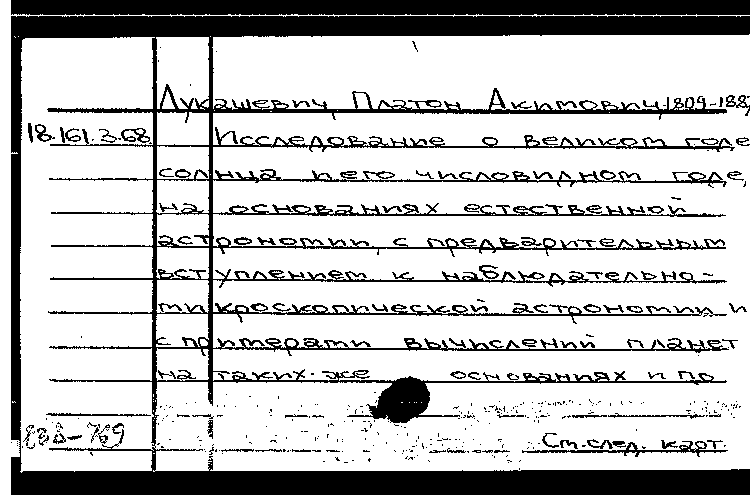 Лукашевич, Платон Акимович, 1809-1887
18.161.3.68 Исследование о великом годе
солнца и его числовидном годе,
на основаниях естественной
астрономии, с предварительным
вступлением к наблюдательно-
микроскопической астрономии и
с примерами вычислений планет
на таких-же основаниях и по
См. след. карт.